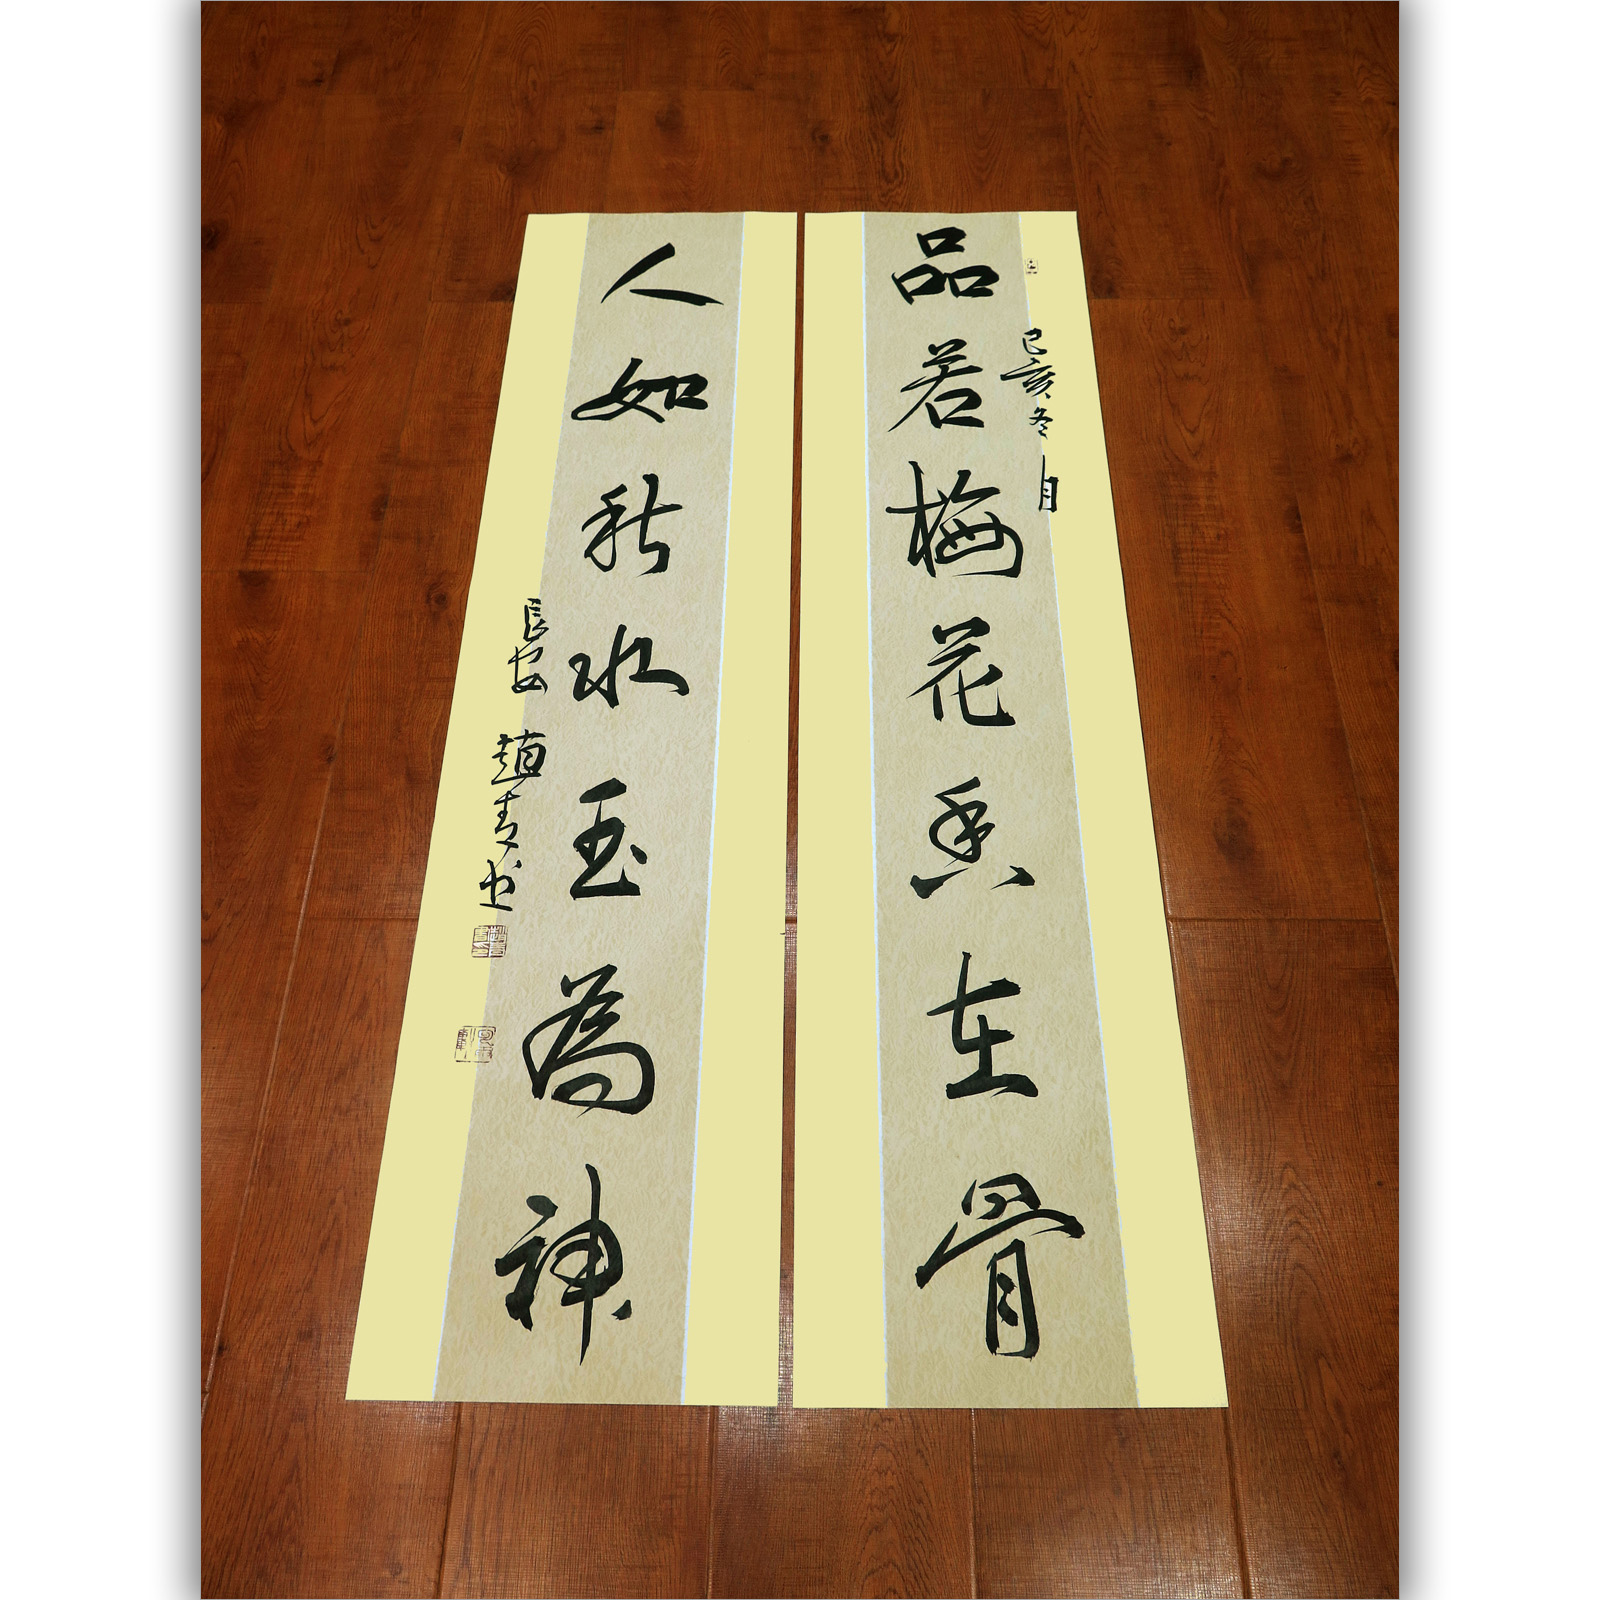 品若梅花香在骨
己亥冬月
人如秋水玉為神
長安趙青书